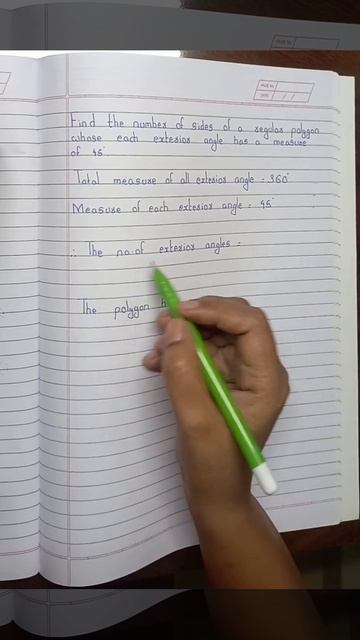 Find the number of sides of a regular polygon
whose each exterior angle has a measure
of 45°.
Total measure of all exterior angle = 360°
Measure of each exterior angle = 45°
∴ The no. of exterior angles =
The polygon h